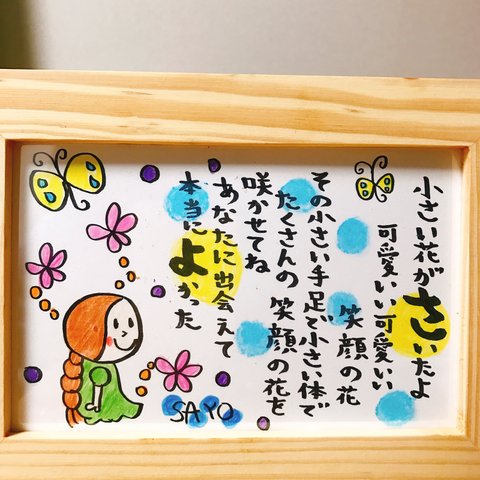 小さい花がさいたよ
可愛いい可愛いい
笑顔の花
その小さい手足で小さい体で
たくさんの笑顔の花を
咲かせてね
あなたに出会えて
本当によかった
SAYO